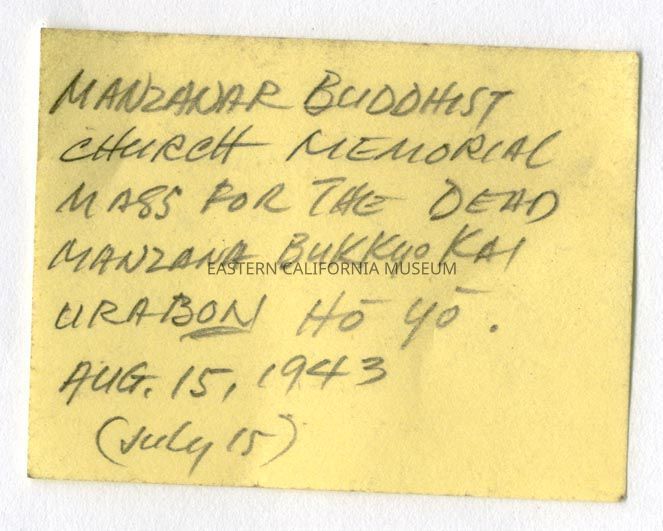 MANZANAR BUDDHIST
CHURCH MEMORIAL
MASS FOR THE DEAD
MANZANA BUKKYO KAI
EASTERN CALIFORNIA MUSEUM
URABON HŌ YŌ.
AUG. 15, 1943
(July 15)